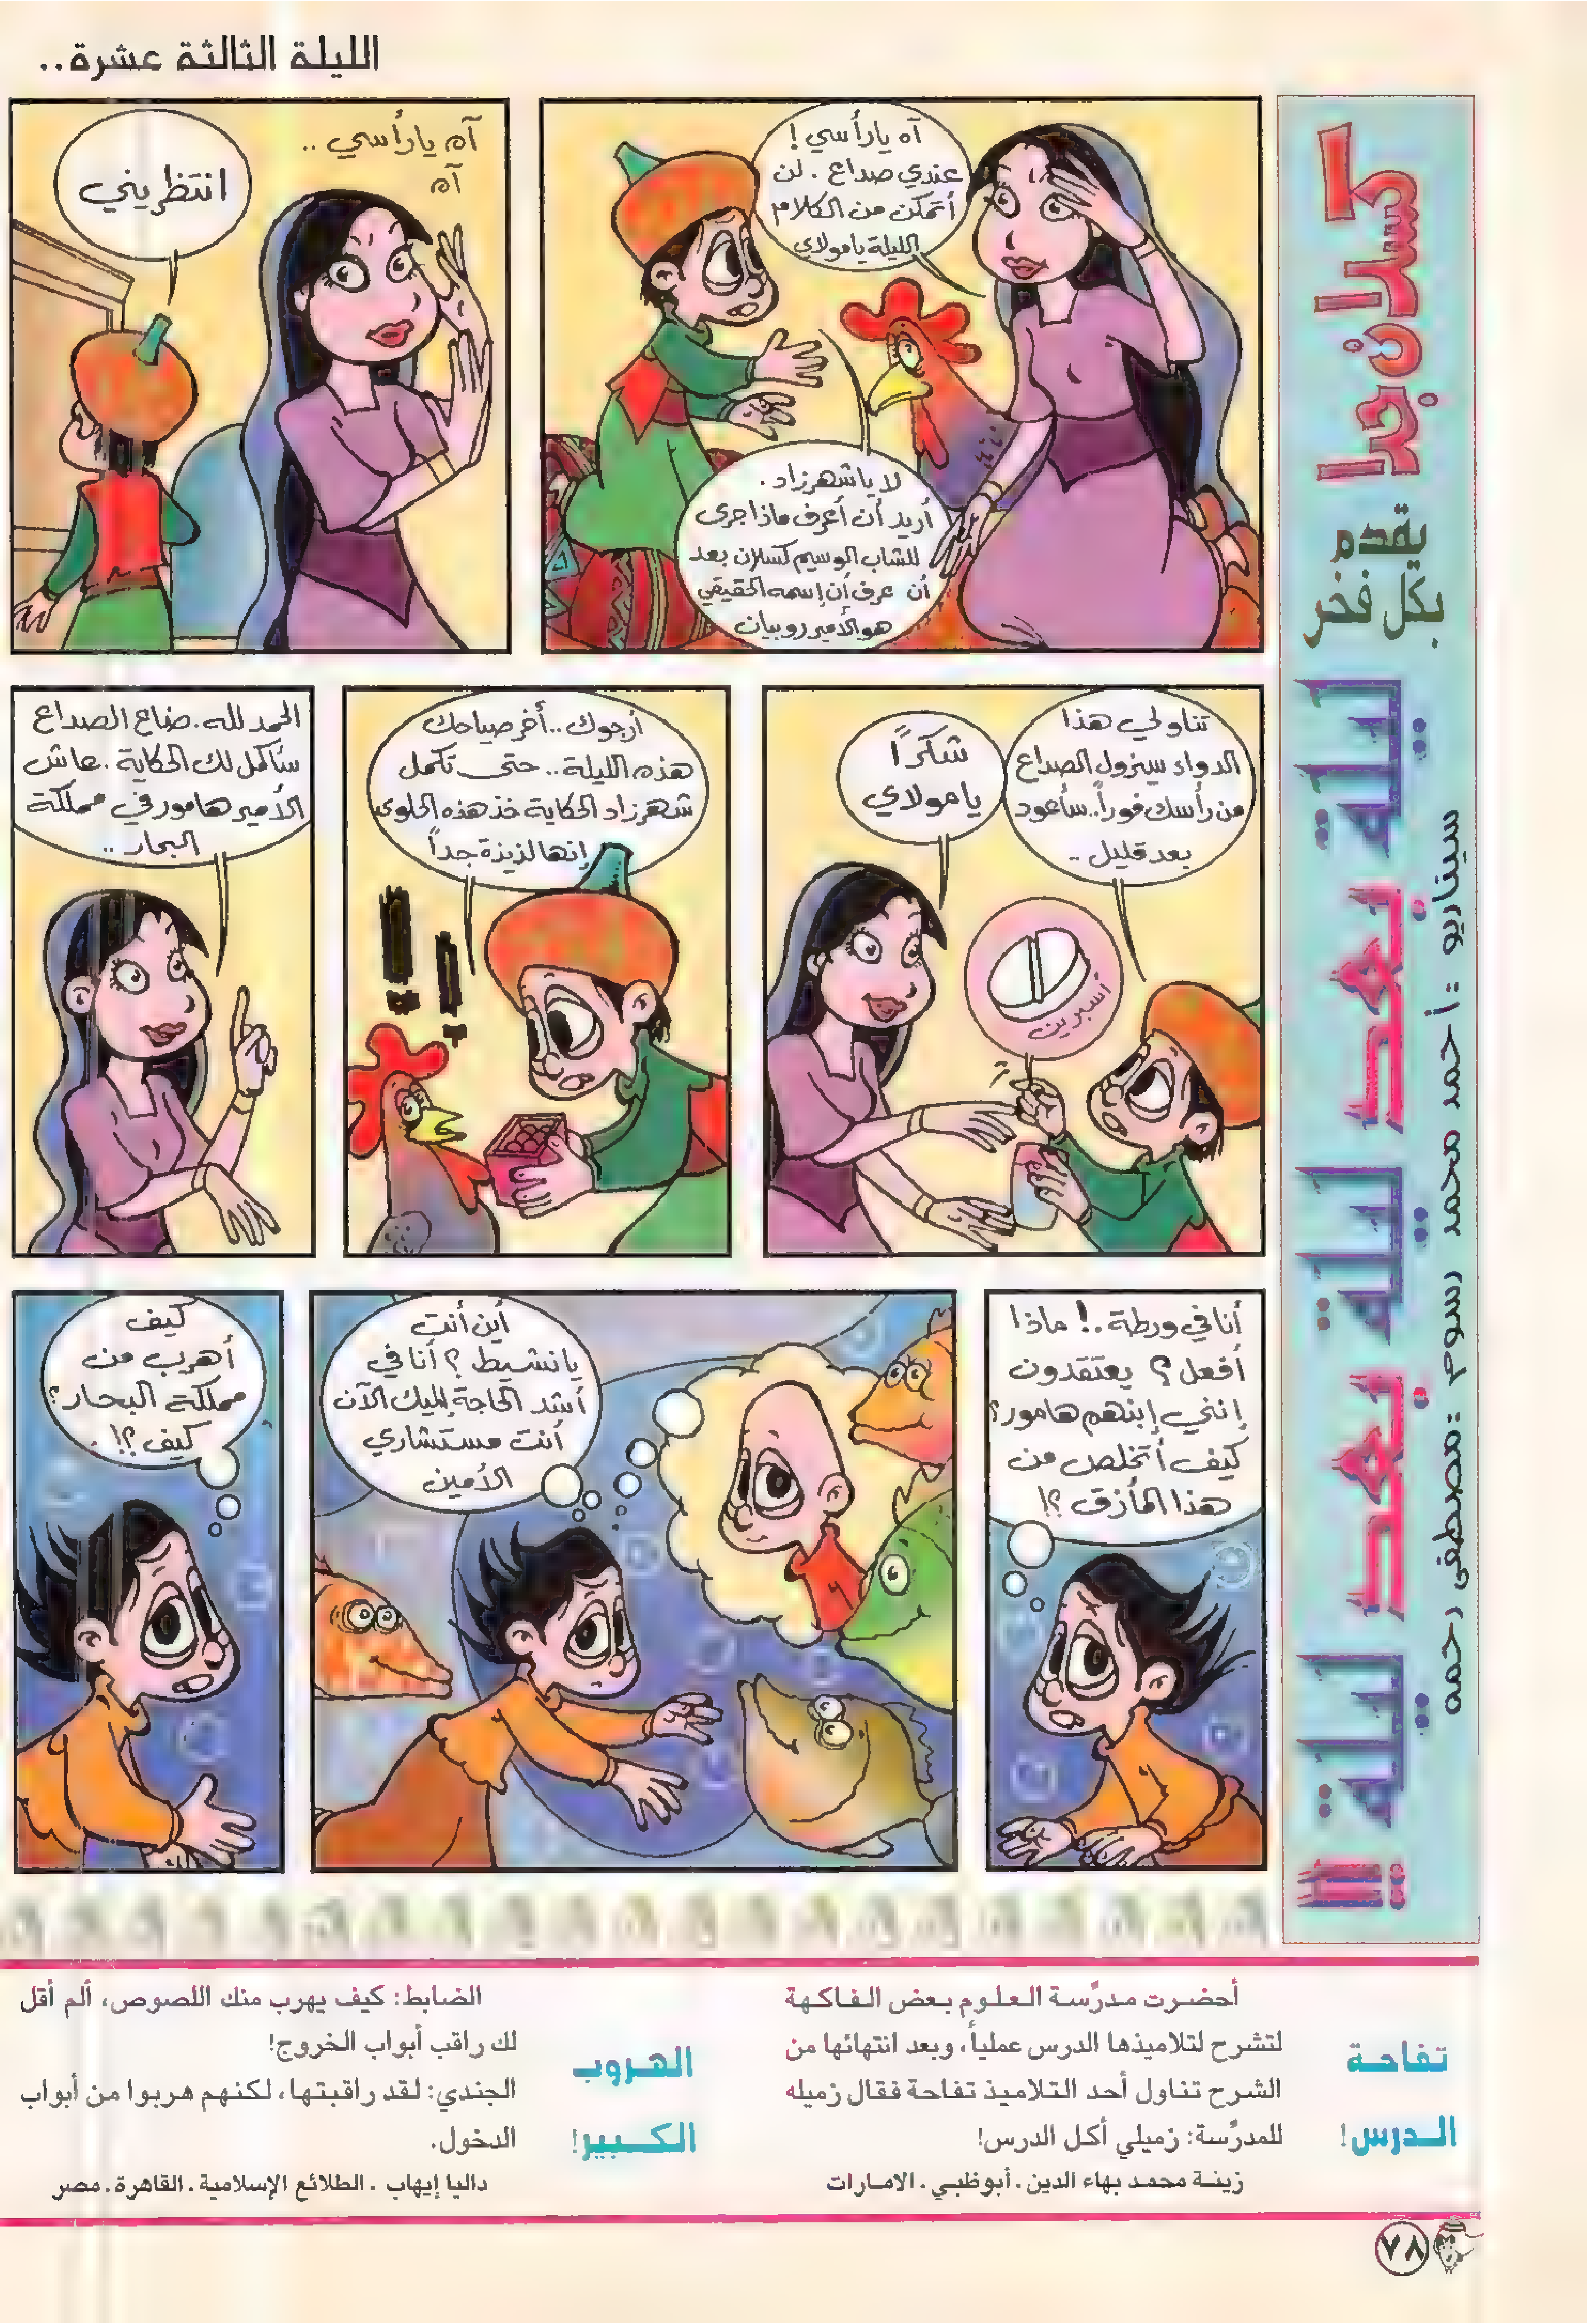 الليلة الثالثة عشرة..
كسلان جدا
يقدم
بكل فخر
ليلة بعد ليلة بعد ليلة !!
سيناريو : أحمد محمد رسوم : مصطفى رحمه
آه يارأسي !
عندي صداع . لن
أتمكن من الكلام
الليلة يامولاي
لا ياشهرزاد .
أريد أن أعرف ماذا جرى
للشاب الوسيم كسلان بعد
أن عرف أن إسمه الحقيقي
هو الأمير روبيان
آه يارأسي ..
آه
انتظريني
تناولي هذا
الدواء سيزول الصداع
من رأسك فوراً.. سأعود
بعد قليل ..
شكراً
يامولاي
أسبرين
أرجوك .. أخر صياحك
هذه الليلة .. حتى تكمل
شهرزاد الحكاية خذ هذه الحلوى
إنها لذيذة جداً
!!
الحمد لله. ضاع الصداع
سأكمل لك الحكاية . عاش
الأمير هامور في مملكة
البحار ..
أنا في ورطة .! ماذا
أفعل ؟ يعتقدون
إنني إبنهم هامور؟
كيف أتخلص من
هذا المأزق ؟!
أين أنت
يانشيط ؟ أنا في
أشد الحاجة إليك الآن
أنت مستشاري
الأمين
كيف
أهرب من
مملكة البحار؟
كيف ؟! .
تفاحة
الدرس!
أحضرت مدرِّسة العلوم بعض الفاكهة
لتشرح لتلاميذها الدرس عملياً، وبعد انتهائها من
الشرح تناول أحد التلاميذ تفاحة فقال زميله
للمدرِّسة: زميلي أكل الدرس!
زينة محمد بهاء الدين . أبوظبي . الامارات
الهروب
الكبير!
الضابط: كيف يهرب منك اللصوص، ألم أقل
لك راقب أبواب الخروج!
الجندي: لقد راقبتها، لكنهم هربوا من أبواب
الدخول.
داليا إيهاب . الطلائع الإسلامية . القاهرة . مصر
٧٨